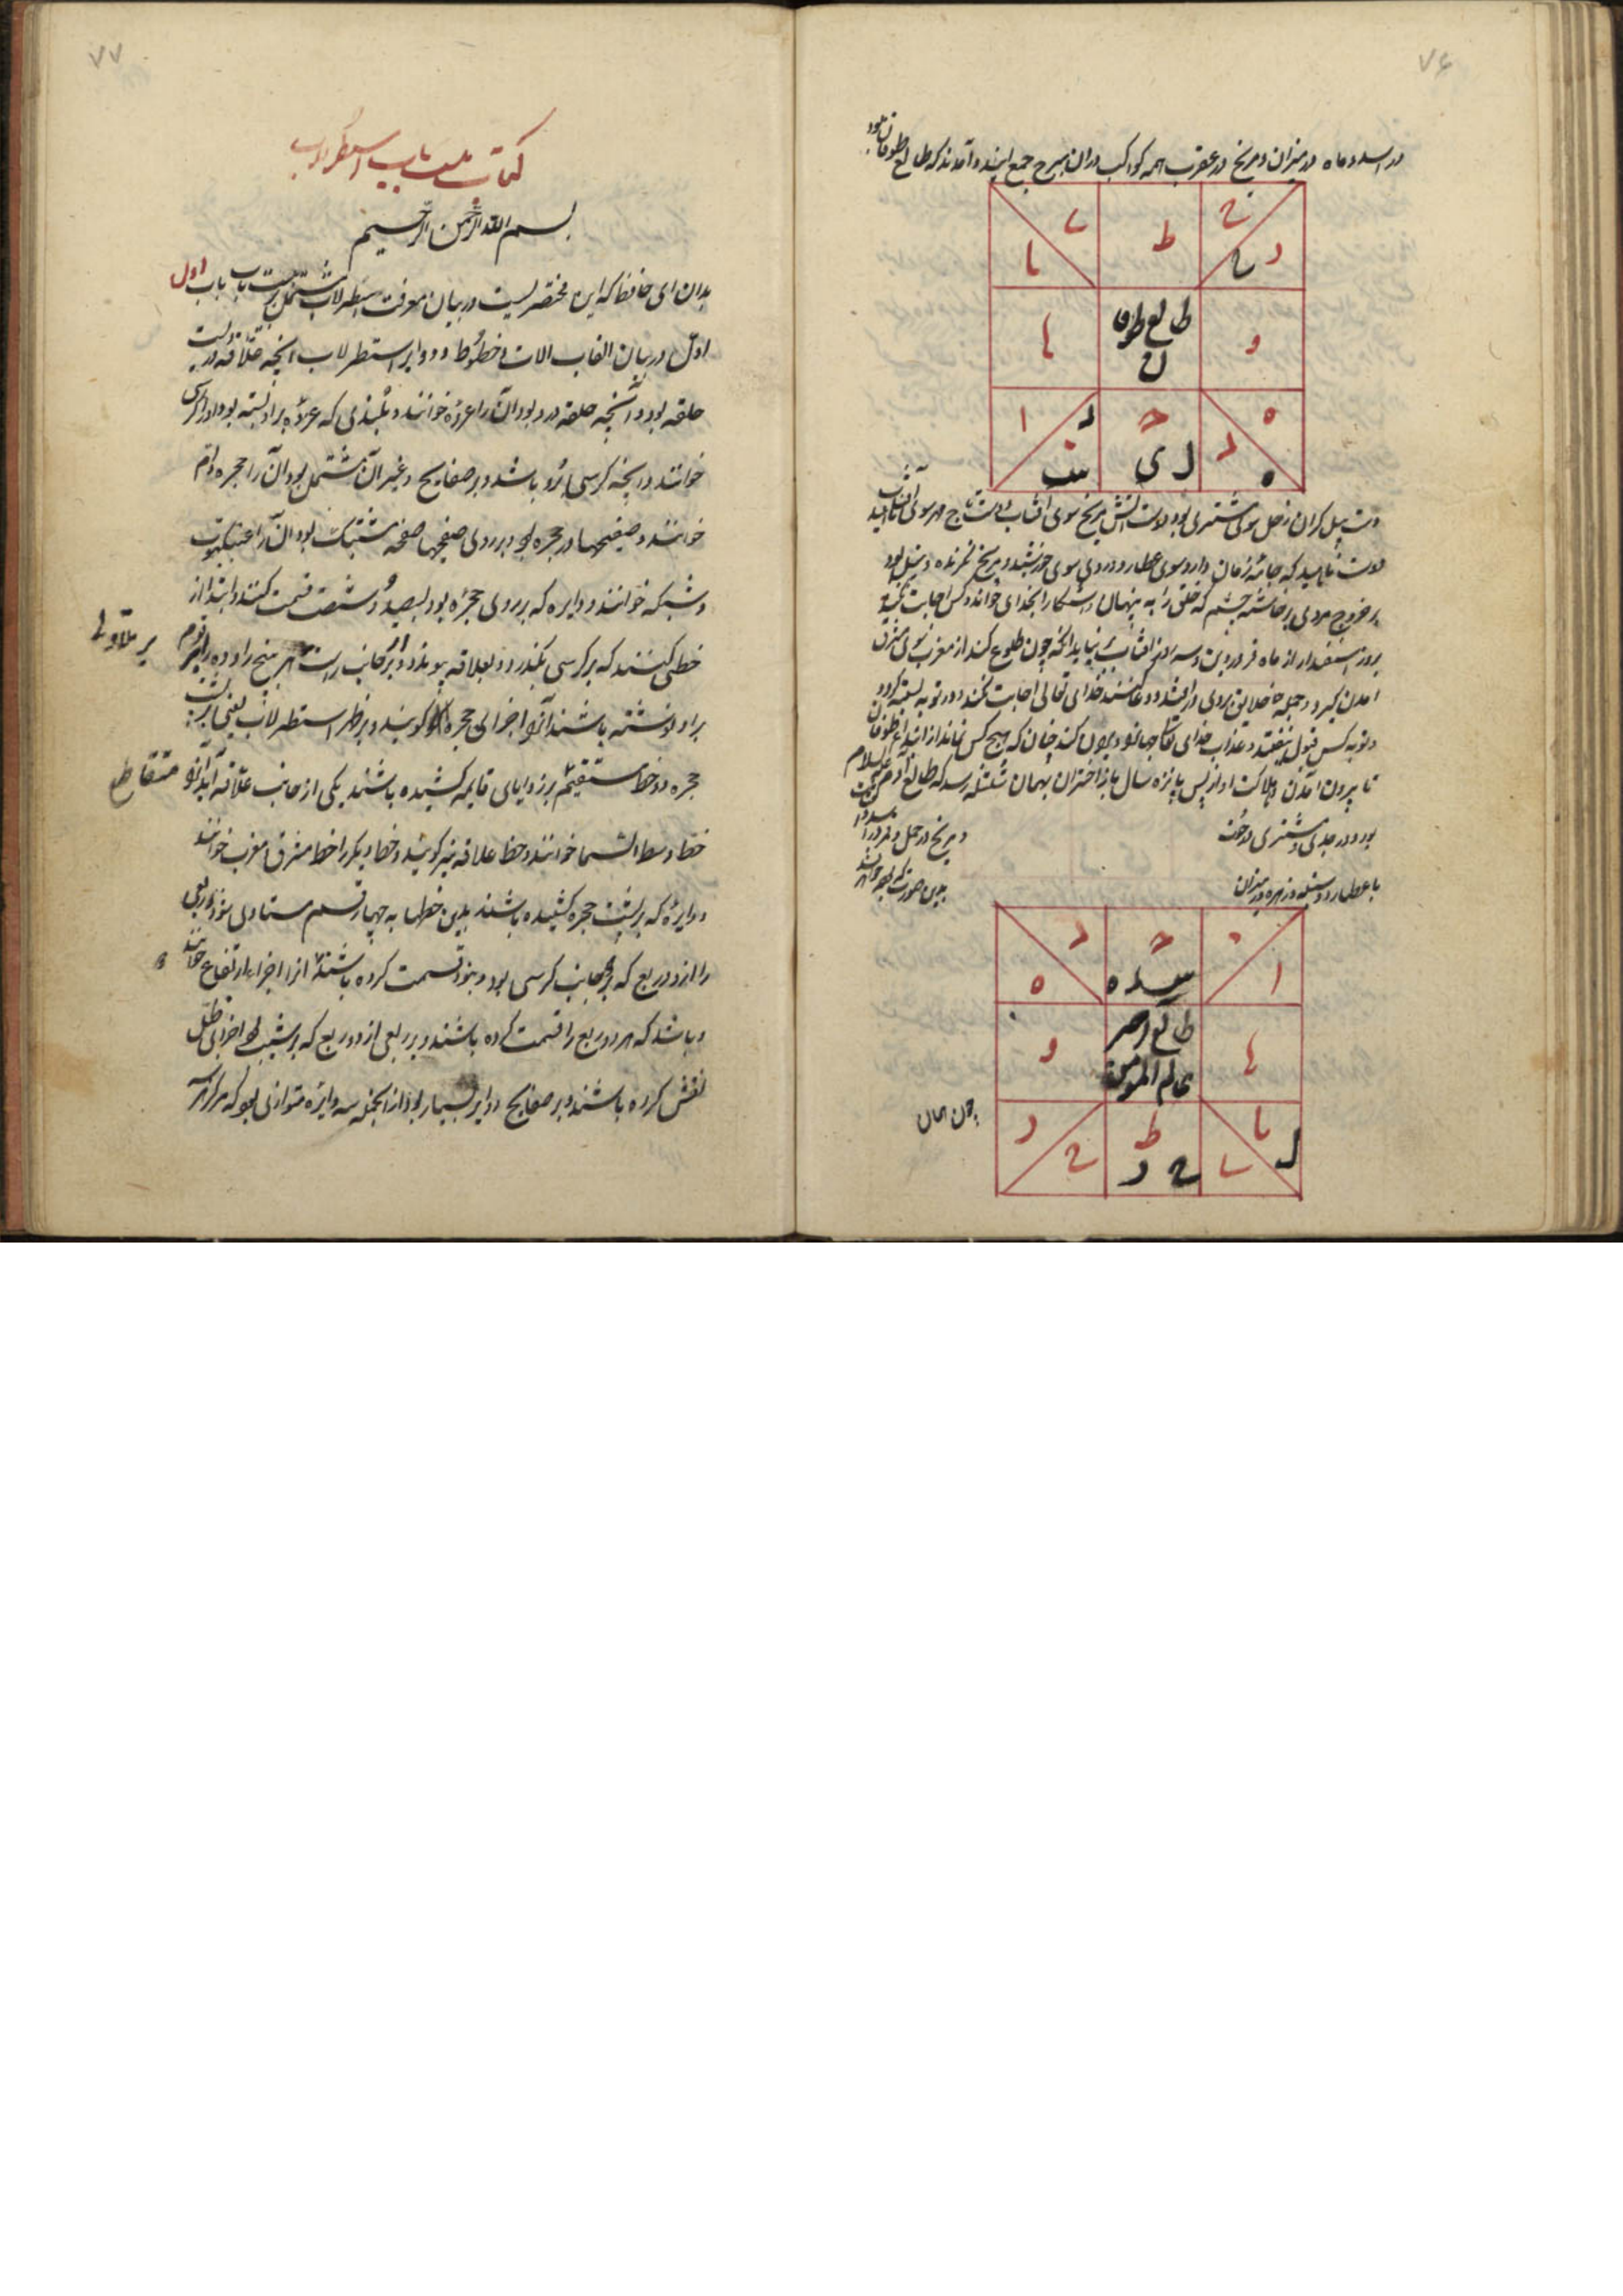 ٧۶
در اسد و ماه در میزان و مریخ در عقرب همه کواکب در آن برج جمع آیند و آمدند که طالع طوفان بود
ح ط ى
د ح يا
و طالع طوفان يا
ه ح د ا
د ل ى
دوست تابید که جامه زمان دارد سوی عطارد و روی سوی خورشید و مریخ
بر خروج مردی برخاسته چشم که خلق را به پنهان و آشکارا بخدای خواند و کس اجابت نکند
بروز اسفندار از ماه فروردین و سه روز آفتاب نیاید آنکه چون طلوع کند از مغرب سوی مشرق
آمدن گیرد و جمله خلایق بروی درافتند و دعا کنند خدای تعالی اجابت نکند و در توبه بسته گردد
و توبه کس قبول نیفتد و عذاب خدای تعالی چنان که هیچ کس نماند از ابتداء طوفان
تا بیرون آمدن و هلاکت او از پس پانزده سال باز اختران بهمان رسد که طالع آدم علیه السلام
بود و در جدی و مشتری در حوت
و مریخ در حمل و قمر در اسد
با عطارد و سنبله و زهره در میزان
بدین صورت که
ا ح د ه
يا طالع آدم و
يا ط ح د
چون همان
٧٧
کتاب بیست باب اسطرلاب
بسم الله الرحمن الرحیم
بدان ای حافظ که این مختصریست در بیان معرفت اسطرلاب مشتمل بر بیست باب باب اول
اول در بیان القاب آلات و خطوط و دوایر اسطرلاب آنچه علاقه درویست
حلقه بود و آنچه حلقه درو بود آن را عروه خوانند و بلندی که عروه برو بسته بود او را کرسی
خوانند و آنچه کرسی برو باشد و بر صفایح و غیر آن مشتمل بود آن را حجره و ام
خوانند و صفیحها در حجره بود و بر روی صفیحها صفحه مشبک بود آن را عنکبوت
و شبکه خوانند و دایره که بر روی حجره بود بسیصد و شصت قسمت کنند و ابتدا از
خطی کنند که بر کرسی بگذرد و بعلاقه پیوندد و بر جانب راست هر پنج را و ده را رقوم
بر توالی
برو نوشته باشند آنرا اجزای حجره گویند و بر ظهر اسطرلاب یعنی بر پشت
حجره دو خط مستقیم بر زوایای قایمه کشیده باشند یکی از جانب علاقه آید آنرا
متقاطع
خط وسط السما خوانند و خط علاقه نیز گویند و خط دیگر را خط مشرق و مغرب خوانند
و دایره که بر پشت حجره کشیده باشند بدین خطها به چهار قسم متساوی شود و ربعی
را از دو ربع که بر جانب کرسی بود و بنود قسمت کرده باشند آنرا اجزاء ارتفاع خوانند
و باشد که هر دو ربع را قسمت کرده باشند و بر ربعی از دو ربع که بر شیب بود اجزای ظل
نقش کرده باشند و بر صفایح دوایر بسیار بود از آنجمله سه دایره متوازی بود که مرکز هر سه